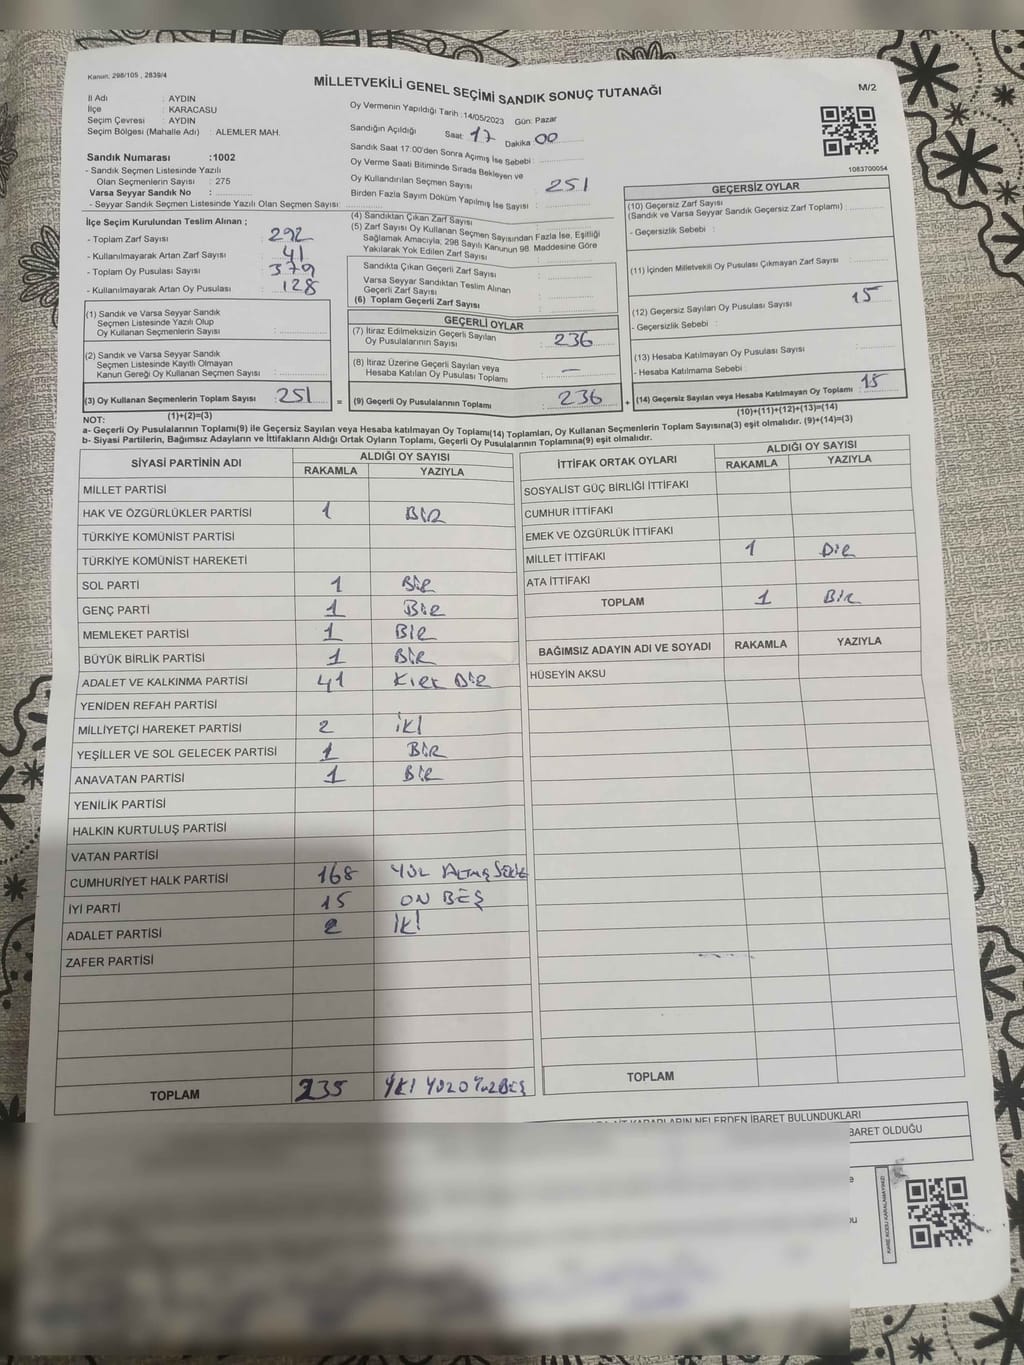 Kanun. 298/105 , 2839/4
MİLLETVEKİLİ GENEL SEÇİMİ SANDIK SONUÇ TUTANAĞI
M/2
İl Adı : AYDIN
İlçe : KARACASU
Seçim Çevresi : AYDIN
Seçim Bölgesi (Mahalle Adı) : ALEMLER MAH.
Oy Vermenin Yapıldığı Tarih :14/05/2023 Gün: Pazar
Sandığın Açıldığı Saat: 17 Dakika 00
Sandık Saat 17:00'den Sonra Açımış İse Sebebi :
Oy Verme Saati Bitiminde Sırada Bekleyen ve
Oy Kullandırılan Seçmen Sayısı 251
Birden Fazla Sayım Döküm Yapılmış İse Sayısı :
1083700054
Sandık Numarası :1002
- Sandık Seçmen Listesinde Yazılı
Olan Seçmenlerin Sayısı : 275
Varsa Seyyar Sandık No :
- Seyyar Sandık Seçmen Listesinde Yazılı Olan Seçmen Sayısı:
İlçe Seçim Kurulundan Teslim Alınan ;
- Toplam Zarf Sayısı : 292
- Kullanılmayarak Artan Zarf Sayısı : 41
- Toplam Oy Pusulası Sayısı : 379
- Kullanılmayarak Artan Oy Pusulası : 128
(1) Sandık ve Varsa Seyyar Sandık
Seçmen Listesinde Yazılı Olup
Oy Kullanan Seçmenlerin Sayısı :
(2) Sandık ve Varsa Seyyar Sandık
Seçmen Listesinde Kayıtlı Olmayan
Kanun Gereği Oy Kullanan Seçmen Sayısı :
(3) Oy Kullanan Seçmenlerin Toplam Sayısı : 251 =
(1)+(2)=(3)
(4) Sandıktan Çıkan Zarf Sayısı
(5) Zarf Sayısı Oy Kullanan Seçmen Sayısından Fazla İse, Eşitliği
Sağlamak Amacıyla; 298 Sayılı Kanunun 98. Maddesine Göre
Yakılarak Yok Edilen Zarf Sayısı
Sandıkta Çıkan Geçerli Zarf Sayısı
Varsa Seyyar Sandıktan Teslim Alınan
Geçerli Zarf Sayısı
(6) Toplam Geçerli Zarf Sayısı
GEÇERLİ OYLAR
(7) İtiraz Edilmeksizin Geçerli Sayılan
Oy Pusulalarının Sayısı : 236
(8) İtiraz Üzerine Geçerli Sayılan veya
Hesaba Katılan Oy Pusulası Toplamı : —
(9) Geçerli Oy Pusulalarının Toplamı : 236 +
GEÇERSİZ OYLAR
(10) Geçersiz Zarf Sayısı
(Sandık ve Varsa Seyyar Sandık Geçersiz Zarf Toplamı) :
- Geçersizlik Sebebi :
(11) İçinden Milletvekili Oy Pusulası Çıkmayan Zarf Sayısı
(12) Geçersiz Sayılan Oy Pusulası Sayısı 15
- Geçersizlik Sebebi :
(13) Hesaba Katılmayan Oy Pusulası Sayısı
- Hesaba Katılmama Sebebi :
(14) Geçersiz Sayılan veya Hesaba Katılmayan Oy Toplamı 15
(10)+(11)+(12)+(13)=(14)
NOT:
a- Geçerli Oy Pusulalarının Toplamı(9) ile Geçersiz Sayılan veya Hesaba katılmayan Oy Toplamı(14) Toplamları, Oy Kullanan Seçmenlerin Toplam Sayısına(3) eşit olmalıdır. (9)+(14)=(3)
b- Siyasi Partilerin, Bağımsız Adayların ve İttifakların Aldığı Ortak Oyların Toplamı, Geçerli Oy Pusulalarının Toplamına(9) eşit olmalıdır.
SİYASİ PARTİNİN ADI ALDIĞI OY SAYISI
RAKAMLA YAZIYLA
MİLLET PARTİSİ
HAK VE ÖZGÜRLÜKLER PARTİSİ 1 BİR
TÜRKİYE KOMÜNİST PARTİSİ
TÜRKİYE KOMÜNİST HAREKETİ
SOL PARTİ 1 BİR
GENÇ PARTİ 1 BİR
MEMLEKET PARTİSİ 1 BİR
BÜYÜK BİRLİK PARTİSİ 1 BİR
ADALET VE KALKINMA PARTİSİ 41 KIRK BİR
YENİDEN REFAH PARTİSİ
MİLLİYETÇİ HAREKET PARTİSİ 2 İKİ
YEŞİLLER VE SOL GELECEK PARTİSİ 1 BİR
ANAVATAN PARTİSİ 1 BİR
YENİLİK PARTİSİ
HALKIN KURTULUŞ PARTİSİ
VATAN PARTİSİ
CUMHURİYET HALK PARTİSİ 168 YÜZ ALTMIŞ SEKİZ
İYİ PARTİ 15 ON BEŞ
ADALET PARTİSİ 2 İKİ
ZAFER PARTİSİ
TOPLAM 235
İTTİFAK ORTAK OYLARI ALDIĞI OY SAYISI
RAKAMLA YAZIYLA
SOSYALİST GÜÇ BİRLİĞİ İTTİFAKI
CUMHUR İTTİFAKI
EMEK VE ÖZGÜRLÜK İTTİFAKI
MİLLET İTTİFAKI 1 BİR
ATA İTTİFAKI
TOPLAM 1 BİR
BAĞIMSIZ ADAYIN ADI VE SOYADI RAKAMLA YAZIYLA
HÜSEYİN AKSU
TOPLAM
NELERDEN İBARET BULUNDUKLARI
BARET OLDUĞU